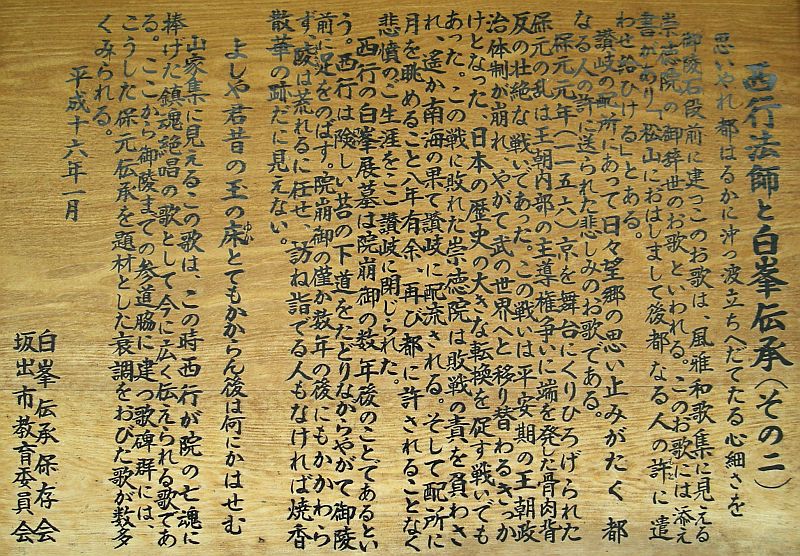 西行法師と白峯伝承（その二）
思いやれ都はるかに沖つ波立ちへだてたる心細さを
御陵石段前に建つこのお歌は、風雅和歌集に見える
崇徳院の「御辞世のお歌といわれる。このお歌には添え
書があり「松山におはしまして後都なる人の許に遣
わせ給ひける」とある。
讃岐の配所にあって日々望郷の思い止みがたく都
なる人の許に送られた悲しみのお歌である。
保元元年（一一五六）京を舞台にくりひろげられた
保元の乱は王朝内部の主導権争いに端を発した骨肉背
反の壮絶な戦いであった。この戦いは平安期の王朝政
治体制が崩れ、やがて武の世界へと移り替わるきっか
けとなった、日本の歴史の大きな転換を促す戦いでも
あった。この戦に敗れた崇徳院は敗戦の責を負わさ
れ、遥か南海の果て讃岐に配流される。そして配所に
月を眺めること八年有余、再び都に許されることなく
悲憤のご生涯をここ讃岐に閉じられた。
西行の白峯展墓は院崩御の数年後のことであるとい
う。西行は険しい苔の下道をたどりながらやがて御陵
前に足をのばす。院崩御の僅か数年の後にもかかわら
ず、陵は荒れるに任せ、訪ね詣でる人もなければ焼香
散華の跡だに見えない。
よしや君昔の玉の床とてもかからん後は何にかはせむ
ゆか
山家集に見えるこの歌は、この時西行が院の亡魂に
捧げた鎮魂絶唱の歌として今に広く伝えられる歌であ
る。ここから御陵までの参道脇に建つ歌碑群には、
こうした保元伝承を題材とした哀調をおびた歌が数多
くみられる。
平成十六年一月
白峯伝承保存会
坂出市教育委員会